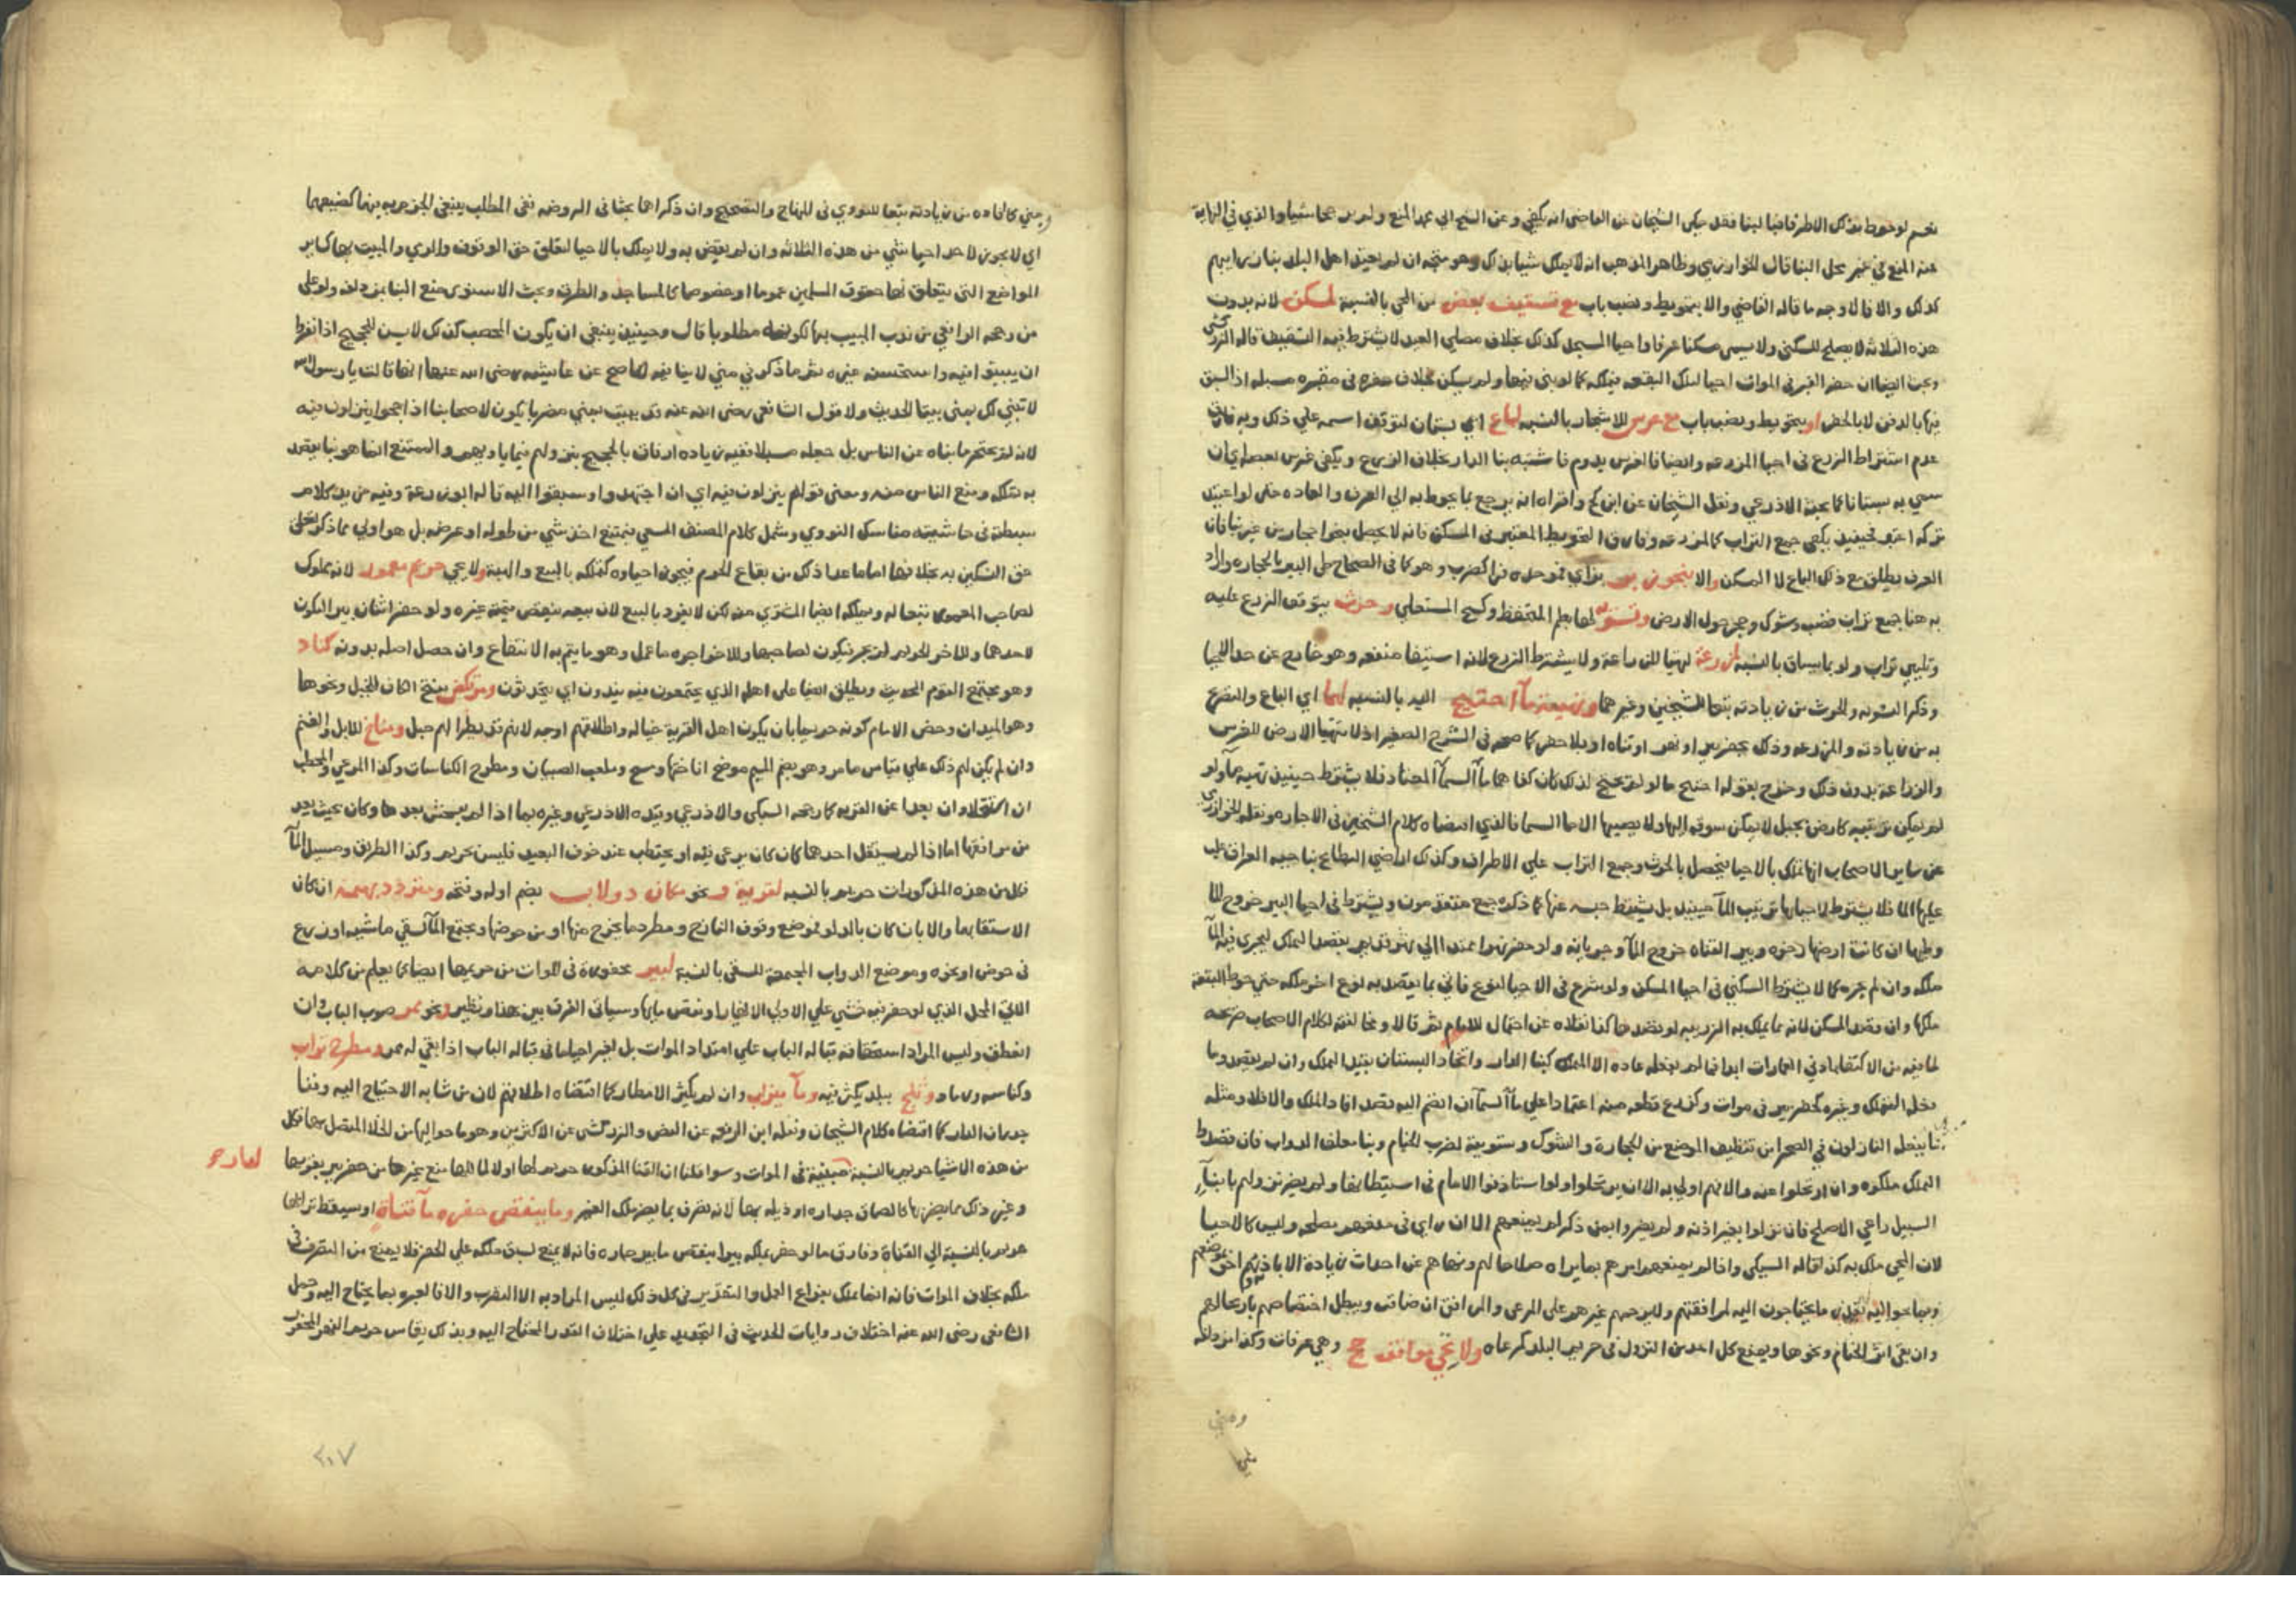 نعم لو حوط بذلك الاطراف فيما لبنا فقد حكى الشيخان عن القاضي انه يكفي وعن الشيخ ابي محمد المنع ولم يرجحا شيا والذي في النهاية
عنه المنع في غير محل البنا قال الخوارزمي وظاهر المذهب انه لا يملك شيا بذلك وهو متجه ان لم يعتد اهل البلد بنا زرايبهم
كذلك والا فالاوجه ما قاله القاضي والا بتحويط ونصب باب مع تسقيف بعض من المحي بالنسبة لمسكن لانه بدون
هذه الثلاثة لا يصلح للسكنى ولا يسمى مسكنا عرفا واحيا المسجد كذلك بخلاف مصلى العيد لا يشترط فيه التسقيف قاله الزركشي
وبحث ايضا ان حفر القبر في الموات احيا لتلك البقعة فيملكه كما لو بنى فيها ولم يسكن بخلاف حفره في مقبرة مسبلة اذ السبق
فيها بالدفن لا بالحفر او بتحويط ونصب باب مع غرس للاشجار بالنسبة لباغ اي بستان لتوقف اسمه على ذلك وبه فارق
عدم اشتراط الزرع في احيا المزرعة وايضا فالغرس يدوم فاشبه بنا الدار بخلاف الزرع ويكفي غرس بعضه بان
سمي به بستانا كما بحثه الاذرعي ونقل الشيخان عن ابن كج واقراه انه يرجع بما يحوط به الى العرف والعادة حتى لو اعتيد
تركه اعتبر فحينئذ يكفي جمع التراب كالمزرعة وفارق التحويط المعتبر في المسكن فانه لا يحصل بنحو احجار من غير بنا فان
العرف يطلق مع ذلك الباغ لا المسكن والا بنحو زبر بزاي فموحدة فرا كضرب وهو كما في الصحاح طي البير بالحجارة واراد
به هنا جمع تراب قصب وشوك وحجر حول الارض وتسوية لها بطم المنخفض وكسح المستعلي وحرث يتوقف الزرع عليه
وتليين تراب ولو بما يساق بالنسبة لمزرعة لتهيا للزراعة ولا يشترط الزرع لانه استيفا منفعة وهو خارج عن حد الاحيا
وذكر التسوية والحرث من زيادته تبعا للشيخين وغيرهما وتهيئة ما احتيج اليه بالنسبة لهما اي الباغ والتصريح
به من زيادته والمزرعة وذلك بحفر بير او نهر او قناة او بلا حفر كما صححه في الشرح الصغير اذ لا تتهيا الارض للغرس
والزراعة بدون ذلك وخرج بقوله احتيج ما لو لم تحتج لذلك كان كفاهما ما السما المعتاد فلا يشترط حينئذ تهيئة ما ولو
لم يمكن ترتيبه كارض بجبل لا يمكن سوقه اليها ولا يصيبها الا ما السما فالذي اقتضاه كلام الشيخين في الاجارة ونقله الخوارزمي
عن ساير الاصحاب انها تملك بالاحيا فيحصل بالحرث وجمع التراب على الاطراف وكذلك اراضي البطاح بناحية العراق يغلب
عليها الما فلا يشترط لاحيايها ترتيب الما حينئذ بل يشترط حبسه عنها كما ذكره جمع متقدمون ويشترط في احيا البير خروج الما
وطيها ان كانت ارضها رخوة وبير القناة خروج الما وجريانه ولو حفر نهرا ممتدا الى نهر قديم بقصد التملك ليجري فيه الما
ملكه وان لم يجره كما لا يشترط السكنى في احيا المسكن ولو شرع في الاحيا لنوع فاتى بما يقصد به نوع اخر ملكه حتى حوط البقعة
ملكها وان قصد المسكن لانه مما يملك به الزريبة لو قصدها كذا نقلاه عن احتمال للامام ثم قالا ومخالفة لكلام الاصحاب صريحة
لما فيه من الاكتفا بادنى العمارات ابدا فما لم يفعله عادة الا المتملك كبنا الدار واتخاذ البستان يفيد الملك وان لم يقصد وما
يفعله المتملك وغيره كحفر بير في موات وكزرع قطعة منه اعتمادا على ما السما ان انضم اليه قصد افاد الملك والا فلا ومثله
ما يفعله النازلون في الصحرا من تنظيف الموضع من الحجارة والشوك وتسويته لضرب الخيام وبنا معلف الدواب فان قصدوا
التملك ملكوه وان ارتحلوا عنه والا فهم اولى به الى ان يرتحلوا ولو استاذنوا الامام في استيطانها ولم يضر نزولهم بابنا
السبيل راعى الاصلح فان نزلوا بغير اذنه ولم يضروا بمن ذكر لم يمنعهم الا ان راى في منعهم مصلحة وليس كالاحيا
لان المحي ملك به كذا قاله السبكي واذا لم يمنعهم امرهم بما يراه صلاحا لهم ونهاهم عن احداث زيادة الا باذنهم احق بموضعهم
وبما حواليه بقدر ما يحتاجون اليه لمرافقهم ولا يزحمهم غيرهم على المرعى والمرافق ان ضاقت ويبطل اختصاصهم بارتحالهم
وان بقي اثر الخيام ونحوها ويمنع كل احد من النزول في حريم البلد كمرعاه ولا تحي مواقف حج وهي عرفات وكذا مزدلفة
ومنى
ومنى كما افاده من زيادته تبعا للنووي في المنهاج والتصحيح وان ذكراها بحثا في الروضة ففي المطلب ينبغي الجزم به فيها كصنيعهما
اي لا يجوز لاحد احيا شي من هذه الثلاثة وان لم يضق به ولا يملك بالاحيا لتعلق حق الوقوف والرمي والمبيت بها كساير
المواضع التي يتعلق بها حقوق المسلمين عموما او خصوصا كالمساجد والطرق وبحث الاسنوي منع البنا بمزدلفة ولو على
من رجحه الرافعي من ندب المبيت بها لكونه مطلوبا قال وحينئذ ينبغي ان يكون المحصب كذلك لانه يسن للحجيج اذا نفروا
ان يبيتوا فيه واستحسنه غيره ثم ما ذكر في منى لا ينافيه لما صح عن عايشة رضي الله عنها انها قالت يا رسول الله
لا تبني لك بمنى بيتا الحديث ولا قول الشافعي رضي الله عنه قد بنيت بمنى مضربا يكون لاصحابنا اذا حجوا ينزلون فيه
لانه لم يحتجر ما بناه عن الناس بل جعله مسبلا ففيه زيادة ارفاق بالحجيج ينزولهم فيما ياويهم والممتنع انما هو بنا بقصد
به تملكه ومنع الناس منه ومعنى قولهم ينزلون فيه اي ان اجتهدوا وسبقوا اليه قاله ابو زرعة وفيه مزيد كلام
بسطته في حاشية مناسك النووي وشمل كلام المصنف المسعى فيمتنع اخذ شي من طوله او عرضه بل هو اولى مما ذكر لتعلق
حق النسكين به بخلافها اما ما عدا ذلك من بقاع الحرم فيجوز احياوه كتملكه بالبيع والهبة ولا حي حريم معمور لانه مملوك
لصاحب المعمور تبعا له ويملكه ايضا المشتري منه لكن لا يفرد بالبيع لان بيعه ينقص قيمة غيره ولو حفر اثنان بيرا ليكون
لاحدهما وللاخر الحريم لم يجز فيكون لصاحبها وللاخر اجرة ما عمل وهو ما يتم به الانتفاع وان حصل اصله بدونه كناد
وهو مجتمع القوم للحديث ويطلق ايضا على اهله الذي يجتمعون فيه يندون اي يتحدثون ومرتكض بفتح الكاف للخيل ونحوها
وهو الميدان وخص الامام كونه حريما بان يكون اهل القرية خيالة واطلاقهم اوجه لانهم قد يطرا لهم خيل ومناخ للابل والغنم
وان لم يكن لهم ذلك على قياس ما مر وهو بضم الميم موضع اناختها وسع وملعب الصبيان ومطرح الكناسات وكذا المرعى والمحتطب
ان استقلا وان بعدا عن القرية كما رجحه السبكي والاذرعي وقيده الاذرعي وغيره بما اذا لم يفحش بعدها وكان بحيث يعد
من مرافقها اما اذا لم يستقل احدهما كان كان يرعى فيه او يحتطب عند خوف البعيد فليس بحريم وكذا الطريق ومسيل الما
فكل من هذه المذكورات حريم بالنسبة لقرية ونحو مكان دولاب بضم اوله وفتحه ومتردد بهيمة ان كان
الاستقا بها والا بان كان بالدلو فموضع وقوف النازح ومطرح ما يخرج منها او من حوضها ومجتمع الما لسقي ماشية او زرع
في حوض او نحوه وموضع الدواب المجتمعة للسقي بالنسبة لبير محفورة في الموات من حريمها ايضا كما يعلم من كلامه
الاتي المحل الذي لو حفر فيه خشي على الاولى الانهيار او نقص مايها وسياتي الفرق بين هذا ونظيره ونحو ممر صوب الباب وان
انعطف وليس المراد استحقاقه قبالة الباب على امتداد الموات بل لغيره احيا ما في قبالة الباب اذا بقي له ممر ومطرح تراب
وكناسة ورماد وثلج ببلد يكثر فيه وما ميزاب وان لم يكثر الامطار كما اقتضاه اطلاقهم لان من شانه الاحتياج اليه وفنا
جدران الدار كما اقتضاه كلام الشيخان ونقله ابن الرفعة عن النص والزركشي عن الاكثرين وهو ما حواليها من الخلا المتصل بها فكل
من هذه الاشيا حريم بالنسبة حقيقية في الموات وسوا قلنا ان الفنا المذكور حريم لها او لا لمالكها منع غيرها من حفر بير بقربها
لدار
وغير ذلك مما يضر بها كالصاق جداره او ذبله بها لانه تصرف بما يضر ملك الغير وما ينقص حفره ما قناة او يسقط ترابها
حريم بالنسبة الى القناة وفارق ما لو حفر بملكه بيرا ينقص ما بير جاره فانه لا يمنع لسبق ملكه على الحفر فلا يمنع من التصرف في
ملكه بخلاف الموات فانه انما يملك بنوع العمل والتقدير في كل ذلك ليس المراد به الا التقريب والا فالعبرة بما يحتاج اليه وحمل
الشافعي رضي الله عنه اختلاف روايات الحديث في التحديد على اختلاف القدر المحتاج اليه وبذلك يقاس حريم النهر المحفور
٣٠٧